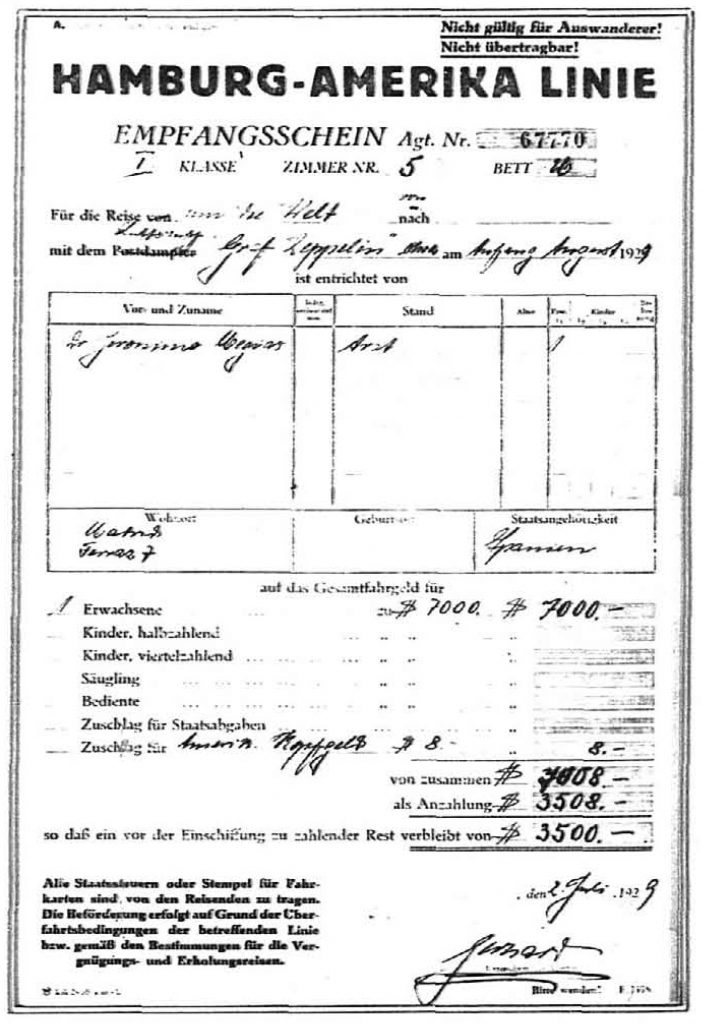 A.
Nicht gültig für Auswanderer!
Nicht übertragbar!
HAMBURG-AMERIKA LINIE
EMPFANGSSCHEIN Agt. Nr. 67770
I KLASSE ZIMMER NR. 5 BETT
Für die Reise von um die Welt nach
mit dem Postdampfer Luftschiff "Graf Zeppelin" etwa am Anfang August 1929
ist entrichtet von
Vor- und Zuname Stand Alter Erw. Kinder
Dr Jeronimo Megias Arzt 1
Wohnort Geburtsort Staatsangehörigkeit
Madrid Spanien
Ferraz 7
auf das Gesamtfahrgeld für
1 Erwachsene zu $ 7000. $ 7000.-
Kinder, halbzahlend
Kinder, viertelzahlend
Säugling
Bediente
Zuschlag für Staatsabgaben
Zuschlag für Amerik. Kopfgeld $ 8.- 8.-
von zusammen $ 7008.-
als Anzahlung $ 3508.-
so daß ein vor der Einschiffung zu zahlender Rest verbleibt von $ 3500.-
Alle Staatssteuern oder Stempel für Fahr-
karten sind von den Reisenden zu tragen.
Die Beförderung erfolgt auf Grund der Über-
fahrtsbedingungen der betreffenden Linie
bzw. gemäß den Bestimmungen für die Ver-
gnügungs- und Erholungsreisen.
den 2. Juli 1929
Bitte wenden!